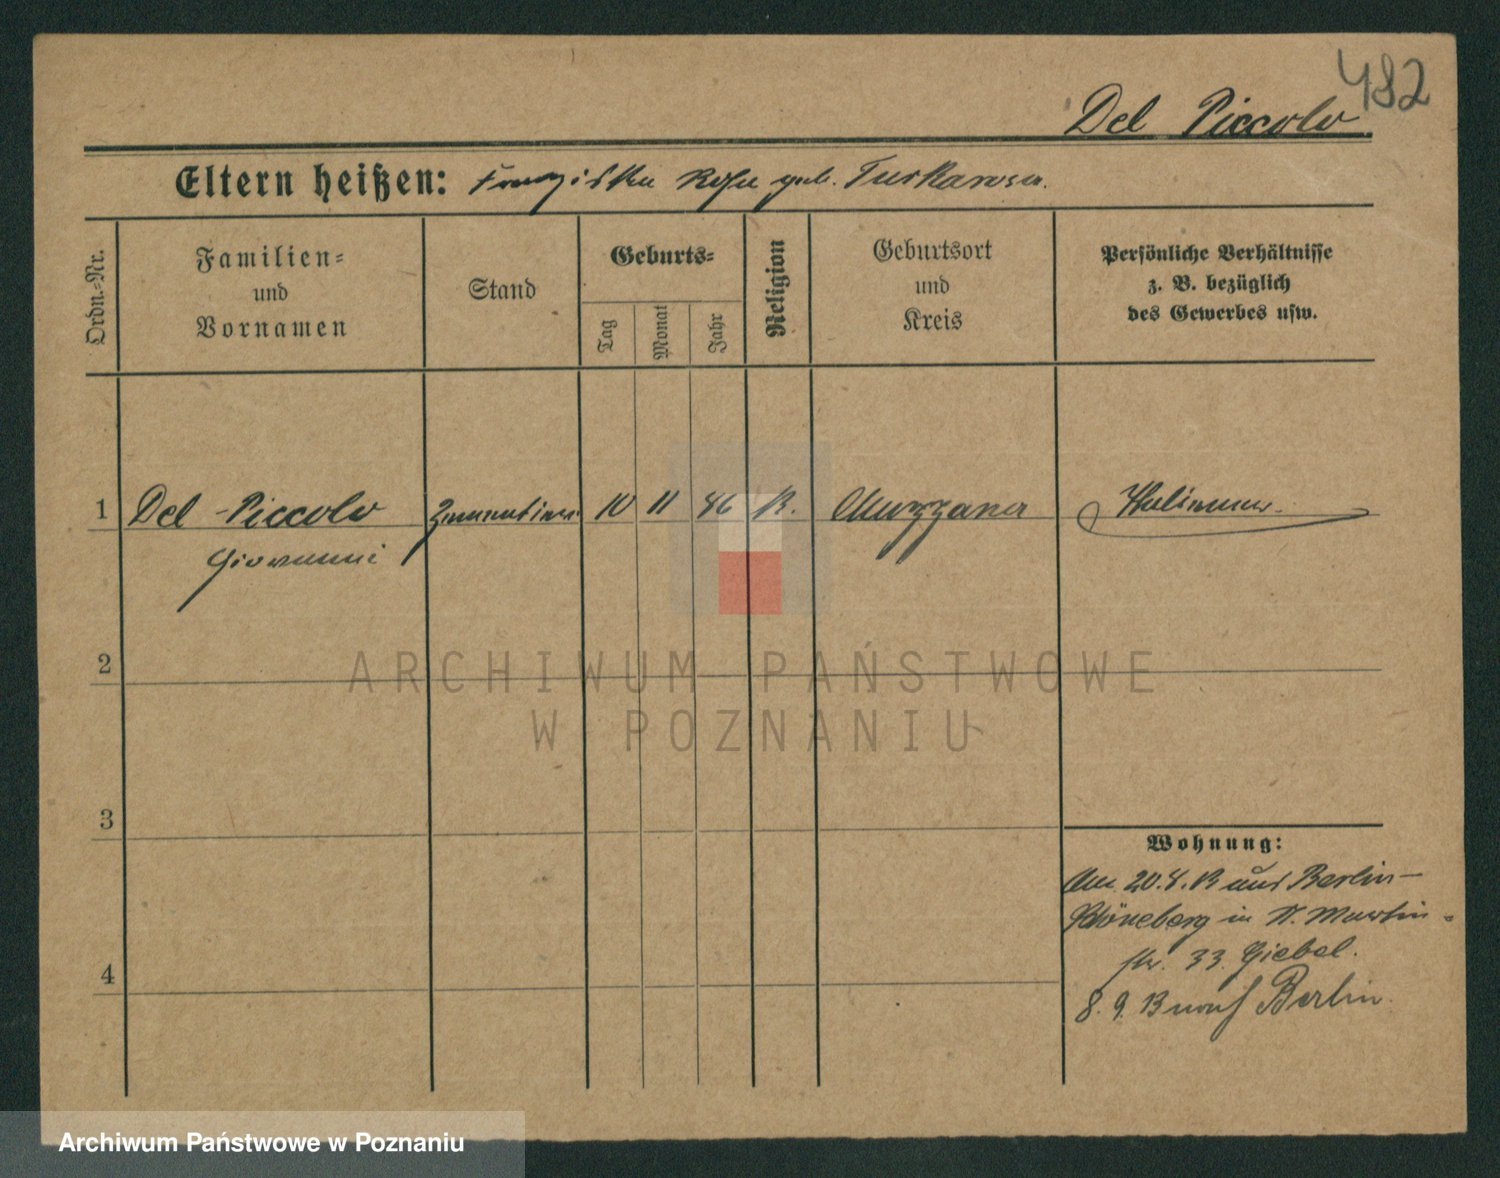 482
Del Piccolo
Eltern heißen: Franziska Rosa geb.
Ordn.-Nr.
Familien-
und
Vornamen
Stand
Geburts-
Tag
Monat
Jahr
Religion
Geburtsort
und
Kreis
Persönliche Verhältnisse
z. B. bezüglich
des Gewerbes usw.
1 Del Piccolo 10 11 86 K. Muzzana Italiener.
Giovanni
2
ARCHIWUM PAŃSTWOWE
W POZNANIU
3
Wohnung:
Am 20.8.13 aus Berlin-
Schöneberg in St. Martin-
str. 33 Giebel.
4
8. 9. 13 nach Berlin.
Archiwum Państwowe w Poznaniu